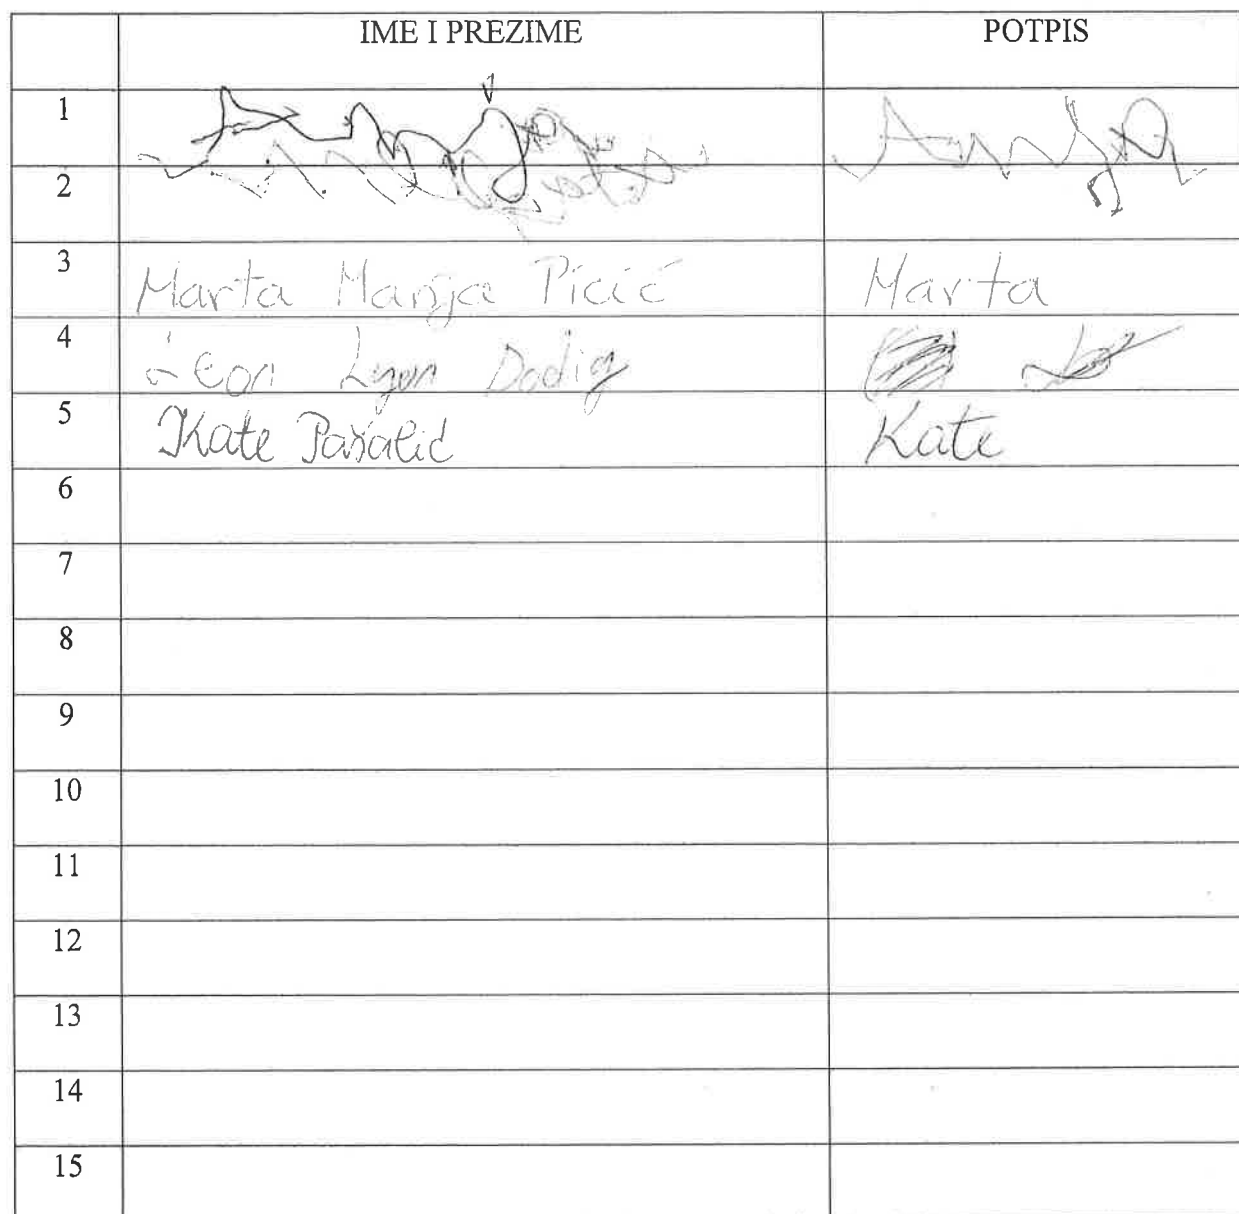 IME I PREZIME POTPIS
1
2
3 Marta Marija Picić Marta
4 Leon Lyon Dodig
5 Kate Pašalić Kate
6
7
8
9
10
11
12
13
14
15